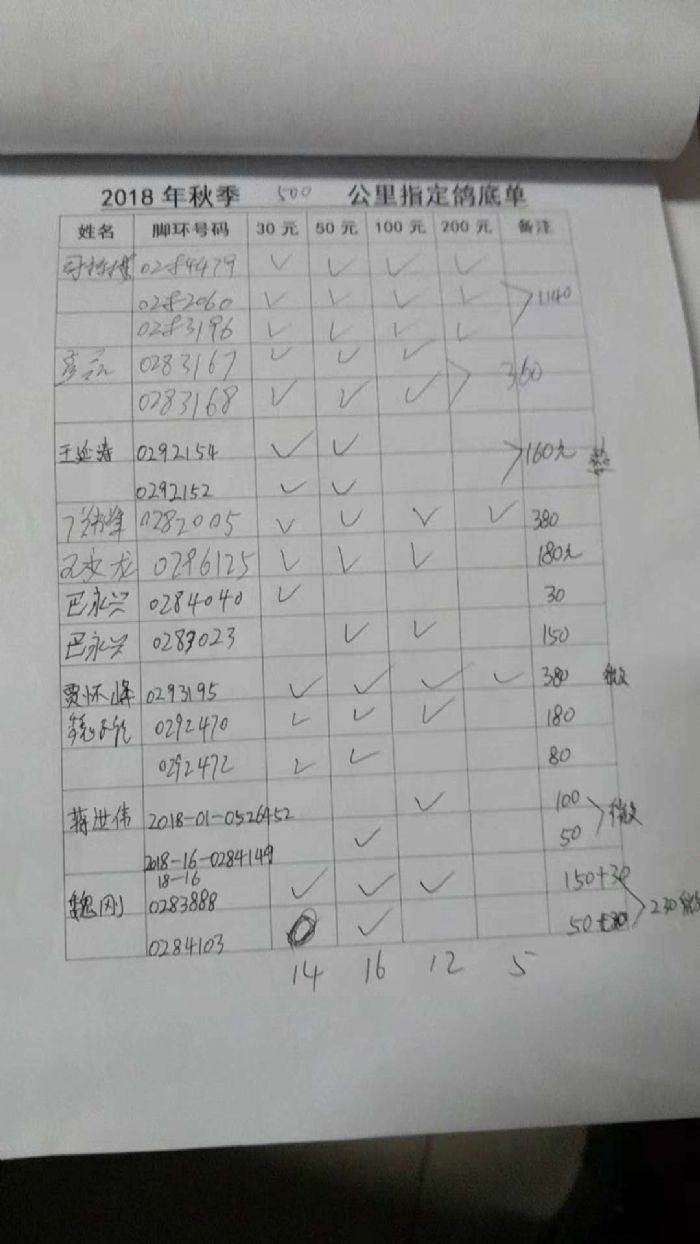 2018 年秋季 500 公里指定鸽底单
姓名 脚环号码 30 元 50 元 100 元 200 元 备注
0284479 ✓ ✓ ✓ ✓
0282060 ✓ ✓ ✓ ✓ 1140
0283196 ✓ ✓ ✓ ✓
0283167 ✓ ✓ ✓
0283168 ✓ ✓ ✓ 360
王延涛 0292154 ✓ ✓ 160元
0292152 ✓ ✓
0282005 ✓ ✓ ✓ ✓ 380
文龙 0296125 ✓ ✓ ✓ 180元
巴永兴 0284040 ✓ 30
巴永兴 0283023 ✓ ✓ 150
贾怀峰 0293195 ✓ ✓ ✓ ✓ 380 微
0292470 ✓ ✓ ✓ 180
0292472 ✓ ✓ 80
蒋世伟 2018-01-0526452 ✓ 100
2018-16-0284149 ✓ 50 微
18-16
魏刚 0283888 ✓ ✓ ✓ 150+30
0284103 ✓ 50 230 微
14 16 12 5